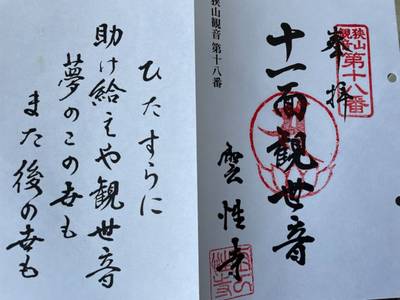 狭山観音 第十八番
狭山
観音
第十八番
奉拝
十一面観世音
雲性寺
ひたすらに
助け給えや観世音
夢のこの世も
また後の世も